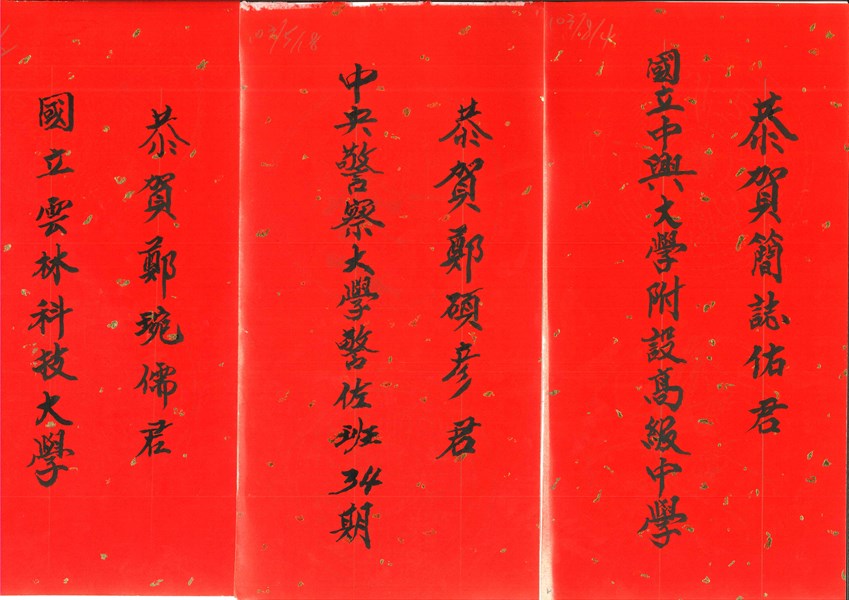 103/8/4
恭賀簡誌佑君
國立中興大學附設高級中學
103/5/18
恭賀鄭碩彥君
中央警察大學警佐班34期
恭賀鄭琬儒君
國立雲林科技大學